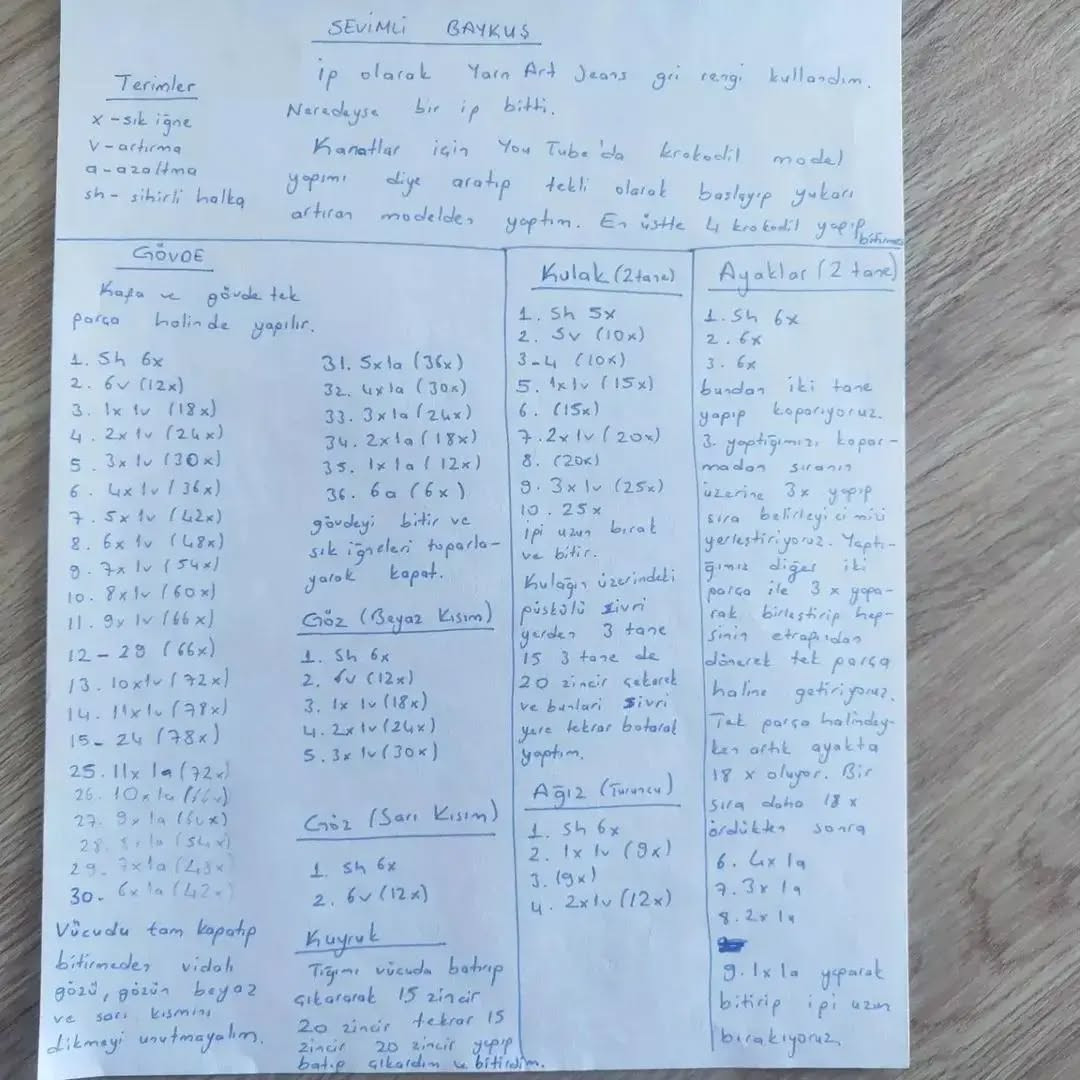 SEVİMLİ BAYKUŞ
ip olarak Yarn Art Jeans gri rengi kullandım.
Neredeyse bir ip bitti.
Kanatlar için You Tube'da krokodil model
yapımı diye aratıp tekli olarak başlayıp yukarı
artıran modelden yaptım. En üstte 4 krokodil yapıp
bitirme
Terimler
x - sık iğne
v - artırma
a - azaltma
sh - sihirli halka
GÖVDE
Kafa ve gövde tek
parça halinde yapılır.
1. Sh 6x
2. 6v (12x)
3. 1x 1v (18x)
4. 2x 1v (24x)
5. 3x 1v (30x)
6. 4x 1v (36x)
7. 5x 1v (42x)
8. 6x 1v (48x)
9. 7x 1v (54x)
10. 8x 1v (60x)
11. 9x 1v (66x)
12 - 29 (66x)
13. 10x1v (72x)
14. 11x 1v (78x)
15 - 24 (78x)
25. 11x 1a (72x)
26. 10x 1a (66x)
27. 9x 1a (60x)
28. 8x 1a (54x)
29. 7x 1a (48x)
30. 6x 1a (42x)
Vücudu tam kapatıp
bitirmeden vidalı
gözü, gözün beyaz
ve sarı kısmını
dikmeyi unutmayalım.
31. 5x 1a (36x)
32. 4x 1a (30x)
33. 3x 1a (24x)
34. 2x 1a (18x)
35. 1x 1a (12x)
36. 6a (6x)
gövdeyi bitir ve
sık iğneleri toparla-
yarak kapat.
Göz (Beyaz Kısım)
1. Sh 6x
2. 6v (12x)
3. 1x 1v (18x)
4. 2x 1v (24x)
5. 3x 1v (30x)
Göz (Sarı Kısım)
1. Sh 6x
2. 6v (12x)
Kuyruk
Tığımı vücuda batırıp
çıkararak 15 zincir
20 zincir tekrar 15
zincir 20 zincir yapıp
batıp çıkardım ve bitirdim.
Kulak (2 tane)
1. Sh 5x
2. 5v (10x)
3-4 (10x)
5. 1x 1v (15x)
6. (15x)
7. 2x 1v (20x)
8. (20x)
9. 3x 1v (25x)
10. 25x
ipi uzun bırak
ve bitir.
Kulağın üzerindeki
püskülü sivri
yerden 3 tane
15 3 tane de
20 zincir çekerek
ve bunları sivri
yere tekrar batarak
yaptım.
Ağız (Turuncu)
1. Sh 6x
2. 1x 1v (9x)
3. (9x)
4. 2x1v (12x)
Ayaklar (2 tane)
1. Sh 6x
2. 6x
3. 6x
bundan iki tane
yapıp koparıyoruz.
3. yaptığımızı kopar-
madan sıranın
üzerine 3x yapıp
sıra belirleyicimizi
yerleştiriyoruz. Yaptı-
ğımız diğer iki
parça ile 3 x yapa-
rak birleştirip hep-
sinin etrafından
dönerek tek parça
haline getiriyoruz.
Tek parça halindey-
ken artık ayakta
18 x oluyor. Bir
sıra daha 18 x
ördükten sonra
6. 4x 1a
7. 3x 1a
8. 2x 1a
9. 1x 1a yaparak
bitirip ipi uzun
bırakıyoruz